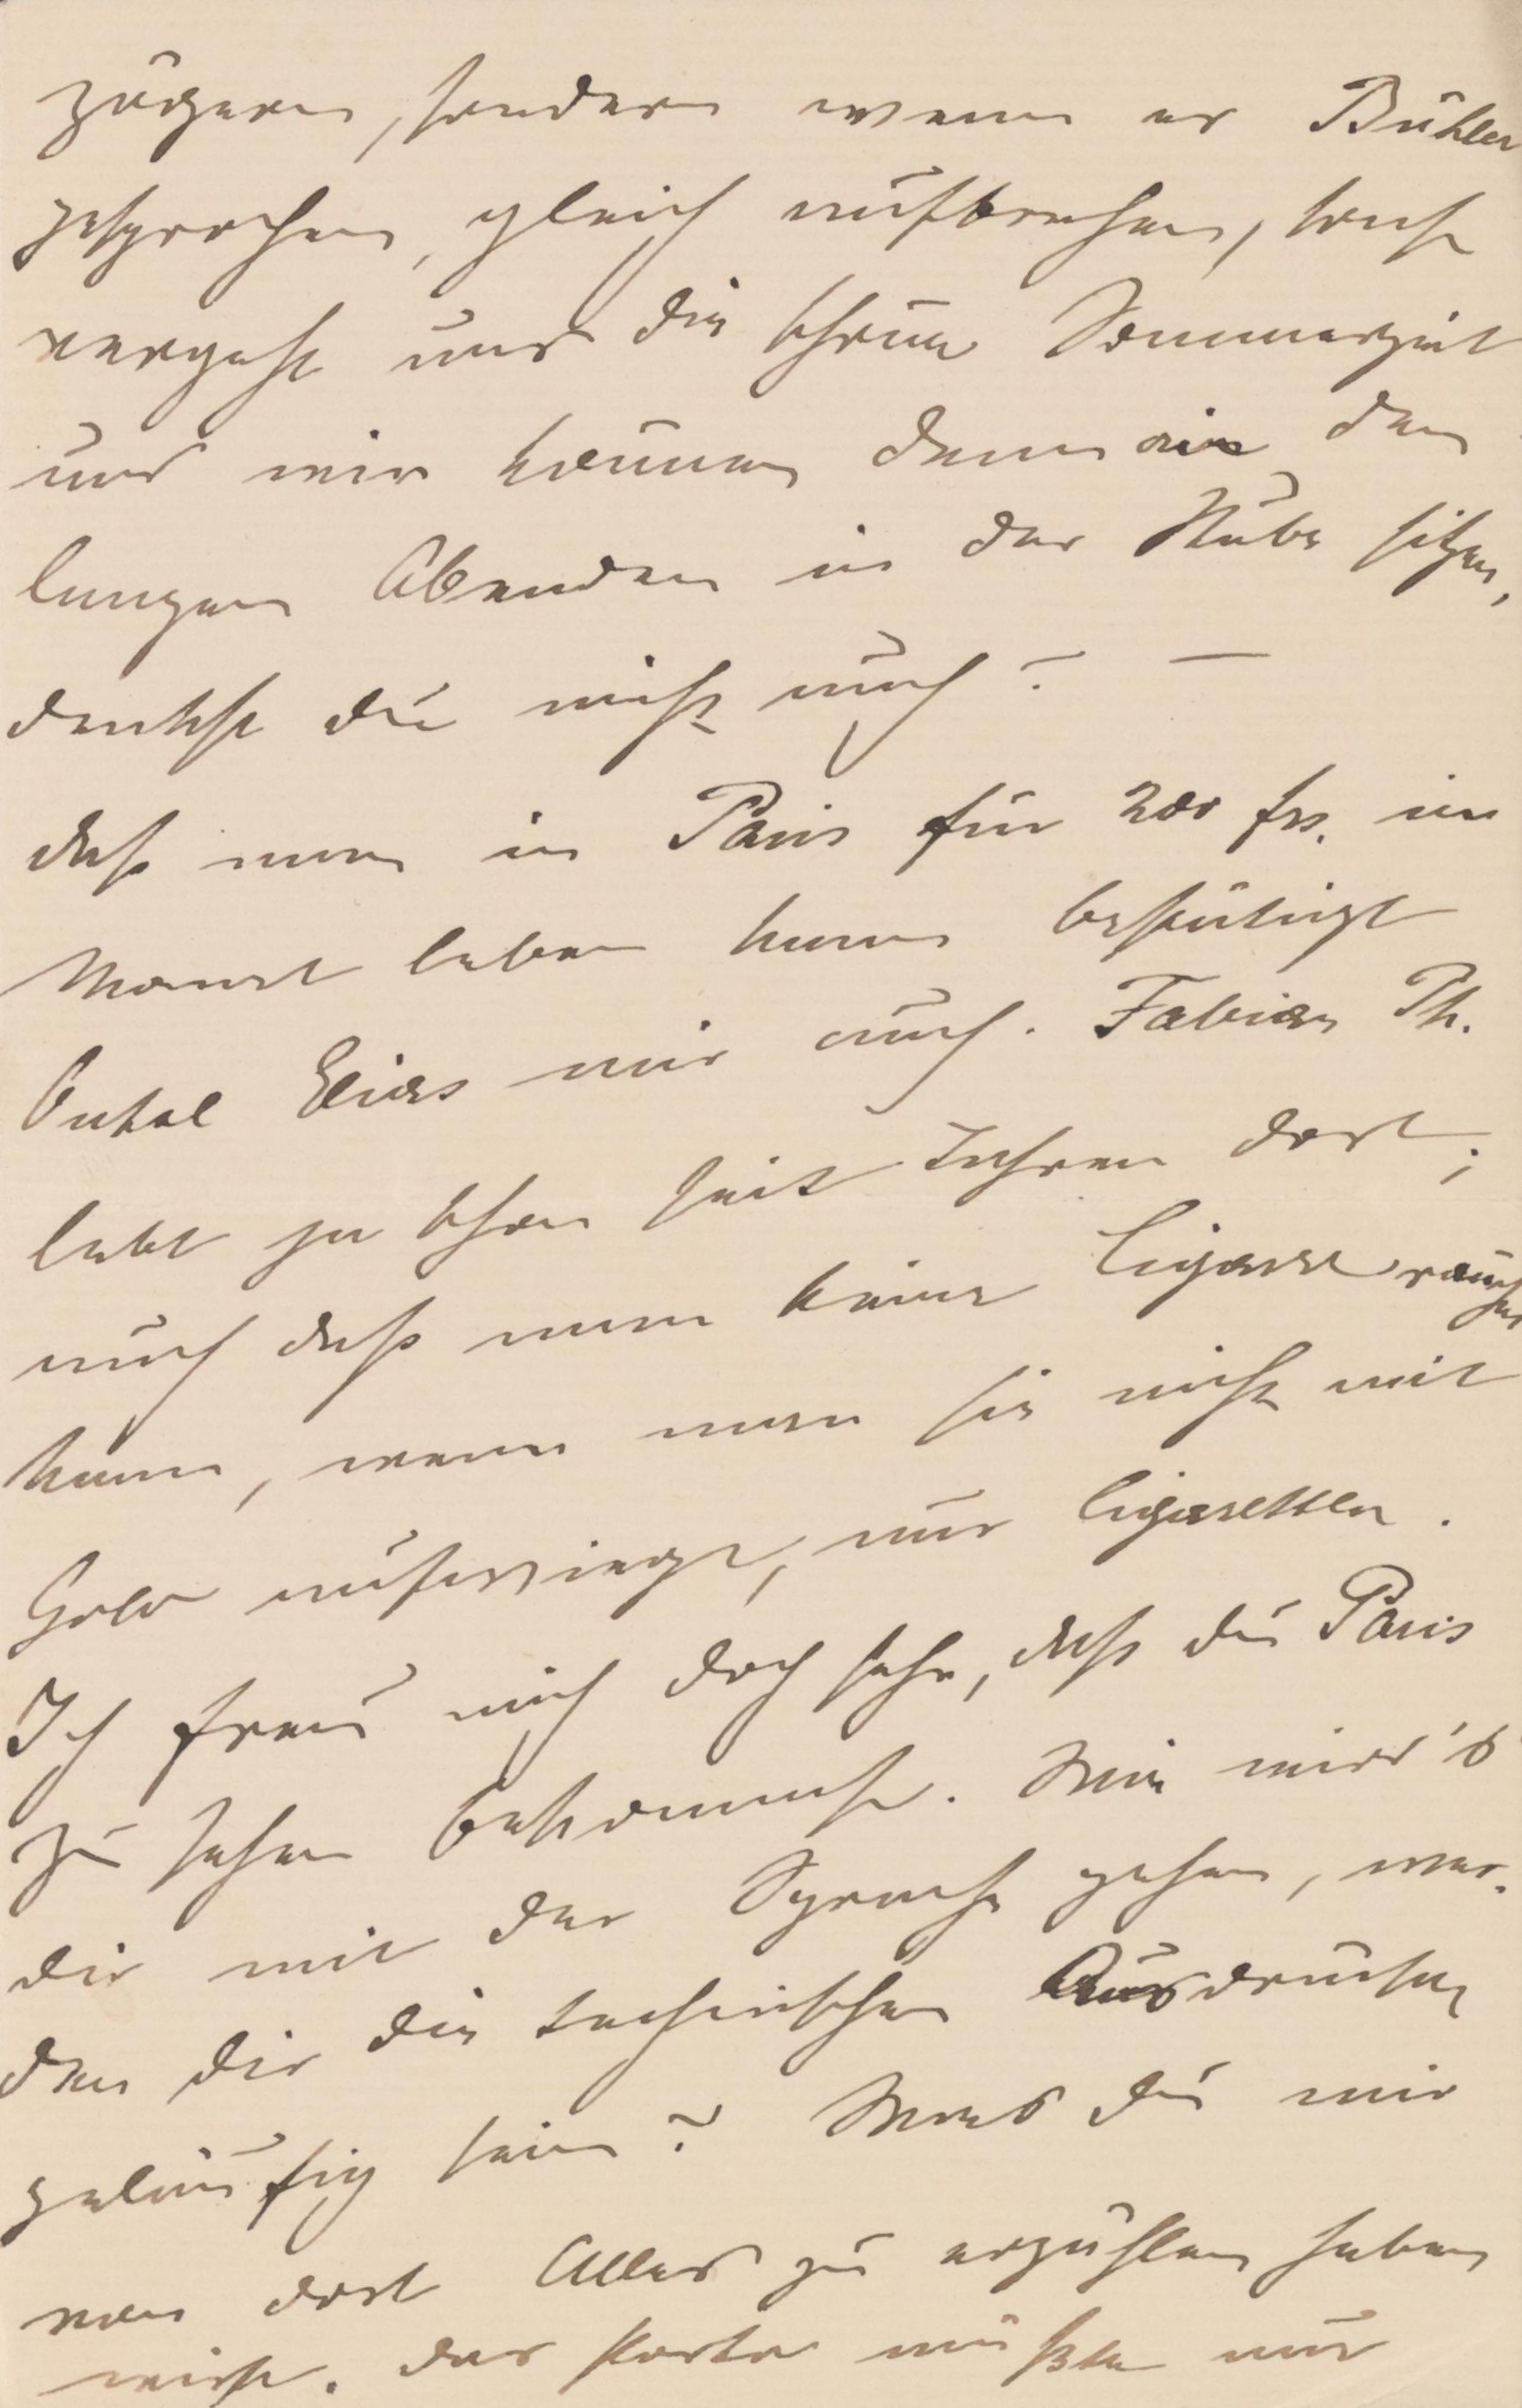 zögern, sondern wenn er Bühler
gesprochen, gleich aufbrechen, sonst
vergeht uns die schöne Sommerzeit
und wir können dann an den
langen Abenden in der Stube sitzen,
denkst du nicht auch? —
daß man in Paris für 200 frs. im
Monat leben kann bestätigt
Onkel Elias mir auch. Fabian Th.
lebt ja schon seit Jahren dort;
auch daß man keine Cigarre rauchen
kann, wenn man sie nicht mit
Gold aufwiegt, nur Cigaretten.
Ich freu mich doch sehr, daß du Paris
zu sehen bekommst. Wie wird's
dir mit der Sprache gehen, wer-
den dir die technischen Ausdrücke
geläufig sein? Was du mir
von dort Alles zu erzählen haben
wirst. das Porto müßte nur